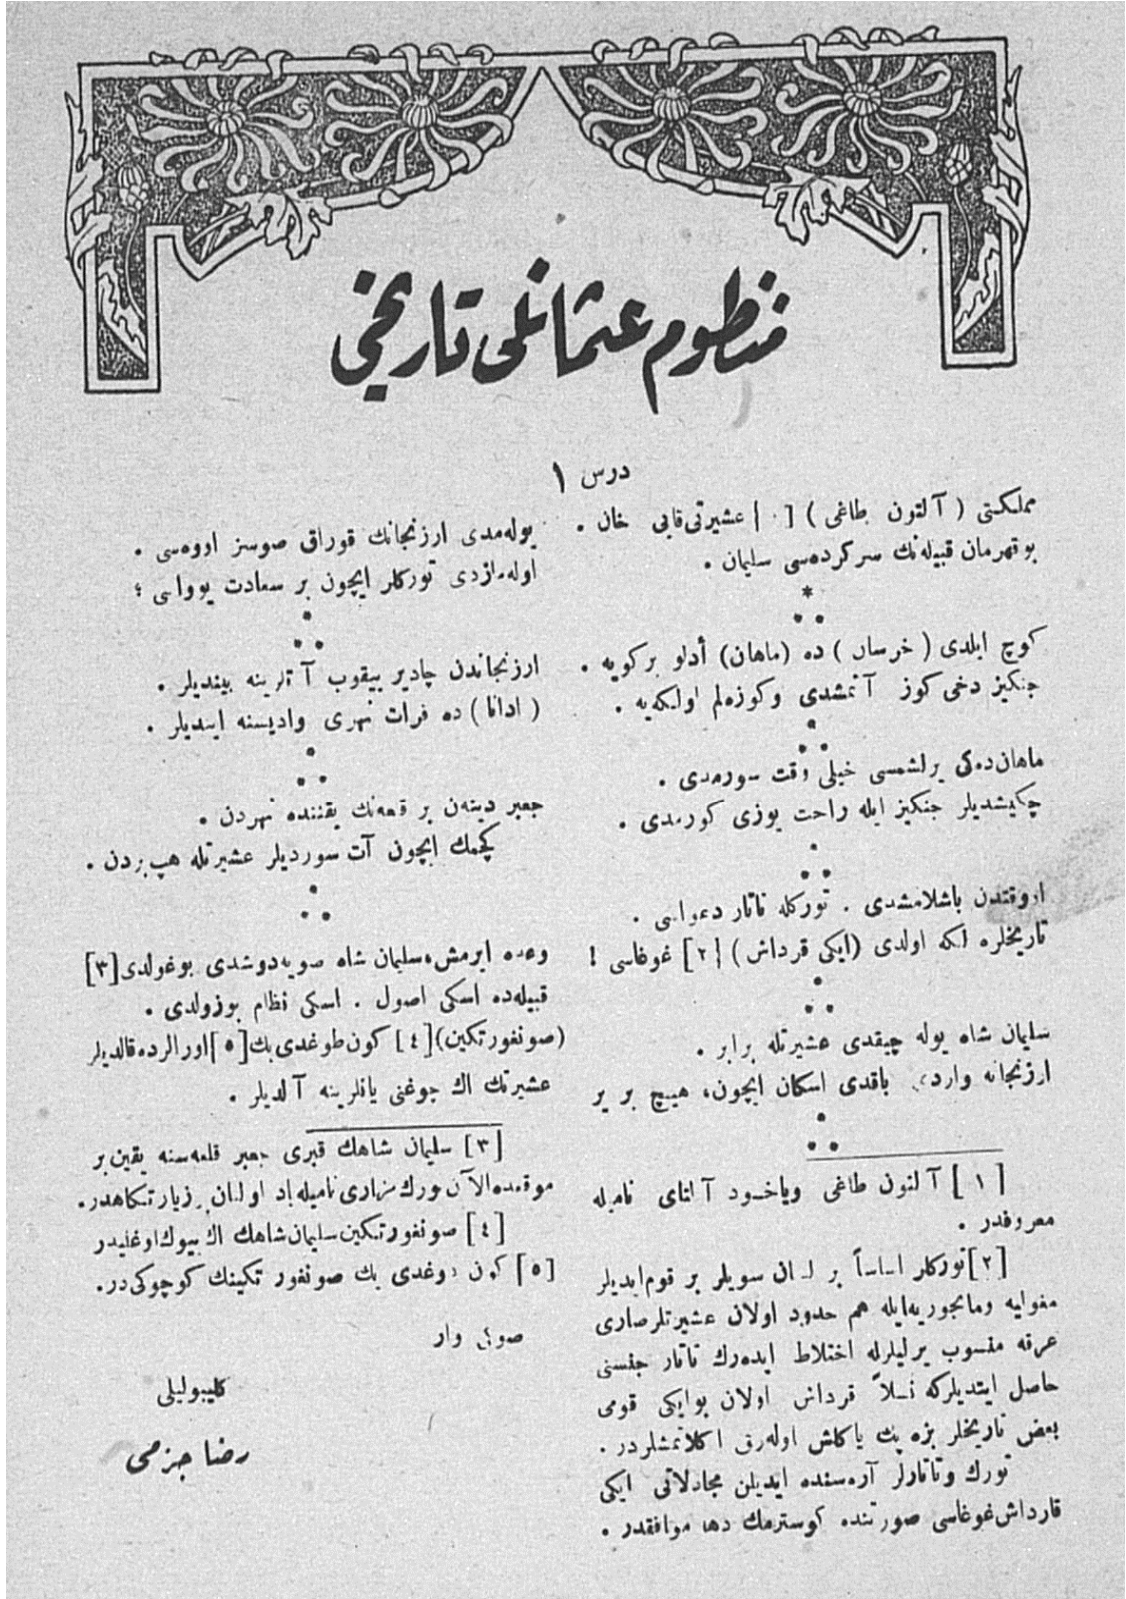 منظوم عثمانلی تاریخی
درس ۱
مملکتی (آلتون طاغی) [۱] عشیرتی قایی خان .
بو قهرمان قبیله‌نك سركرده‌سی سلیمان .
*
* *
كوچ ایلدی (خرسان) ده (ماهان) أدلو بركویه .
جنكیز دخی كوز آتمشدی وكوزه‌لم اولكه‌یه .
*
* *
ماهان‌ده‌كی یرلشمسی خیلی وقت سورمدی .
چكیشدیلر جنكیز ایله راحت یوزی كورمدی .
*
* *
اروقتدن باشلامشدی . توركله تاتار دعواسی .
تاریخلره لكه اولدی (ایكی قرداش) [۲] غوغاسی !
*
* *
سلیمان شاه یوله چیقدی عشیرتله برابر .
ارزنجانه واردی باقدی اسكان ایچون، هیچ بر یر
*
* *
[۱] آلتون طاغی ویاخود آلتای نامیله
معروفدر .
[۲] توركلر اساساً بر لسان سویلر بر قوم ایدیلر
مغولیه ومانجوریه‌ایله هم حدود اولان عشیرتلر صاری
عرقه منسوب یرلیلرله اختلاط ایده‌رك تاتار جنسنی
حاصل ایتدیلركه نسلاً قرداش اولان بوایكی قومی
بعض تاریخلر بزه پك یاكلش اوله‌رق اكلاتمشلردر .
تورك وتاتارلر آره‌سنده ایدیلن مجادلاتی ایكی
قارداش غوغاسی صورتنده كوسترمك دها موافقدر .
بوله‌مدی ارزنجانك قوراق صوسز اووه‌سی .
اوله‌مازدی توركلر ایچون بر سعادت یوواسی ؛
*
* *
ارزنجاندن چادیر ییقوب آتلرینه بیندیلر .
(ادانا) ده فرات نهری وادیسنه ایندیلر .
*
* *
جعبر دینه‌ن بر قلعه‌نك یقننده نهردن .
كچمك ایچون آت سوردیلر عشیرتله هپ بردن .
*
* *
وعده ایرمش، سلیمان شاه صویه دوشدی بوغولدی [۳]
قبیله‌ده اسكی اصول . اسكی نظام بوزولدی .
(صونغور تكین) [٤] كون طوغدی بك [٥] اورالرده قالدیلر
عشیرتك اك چوغنی یانلرینه آلدیلر .
[۳] سلیمان شاهك قبری جعبر قلعه‌سنه یقین بر
موقعده الآن تورك مزاری نامیله یاد اولنان بر زیارتكاهدر.
[٤] صونغور تكین سلیمان شاهك اك بیوك اوغلیدر
[٥] كون دوغدی بك صونغور تكینك كوچوكی در.
صوكی وار
كلیبولیلی
رضا جزمی